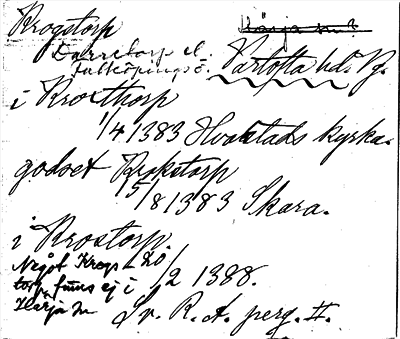 Krogstorp
Härja sn?
Darretorp el.
Falköpings ö. Vartofta hd. Vg.
i Krocthorp
1/4 1383 Hvalstads kyrka.
godset Krokstorp
15/8 1383 Skara.
i Krostorp.
Något Krogs- 20/2 1388.
torp finns ej i
Härja sn Sv. R. A. perg. II.